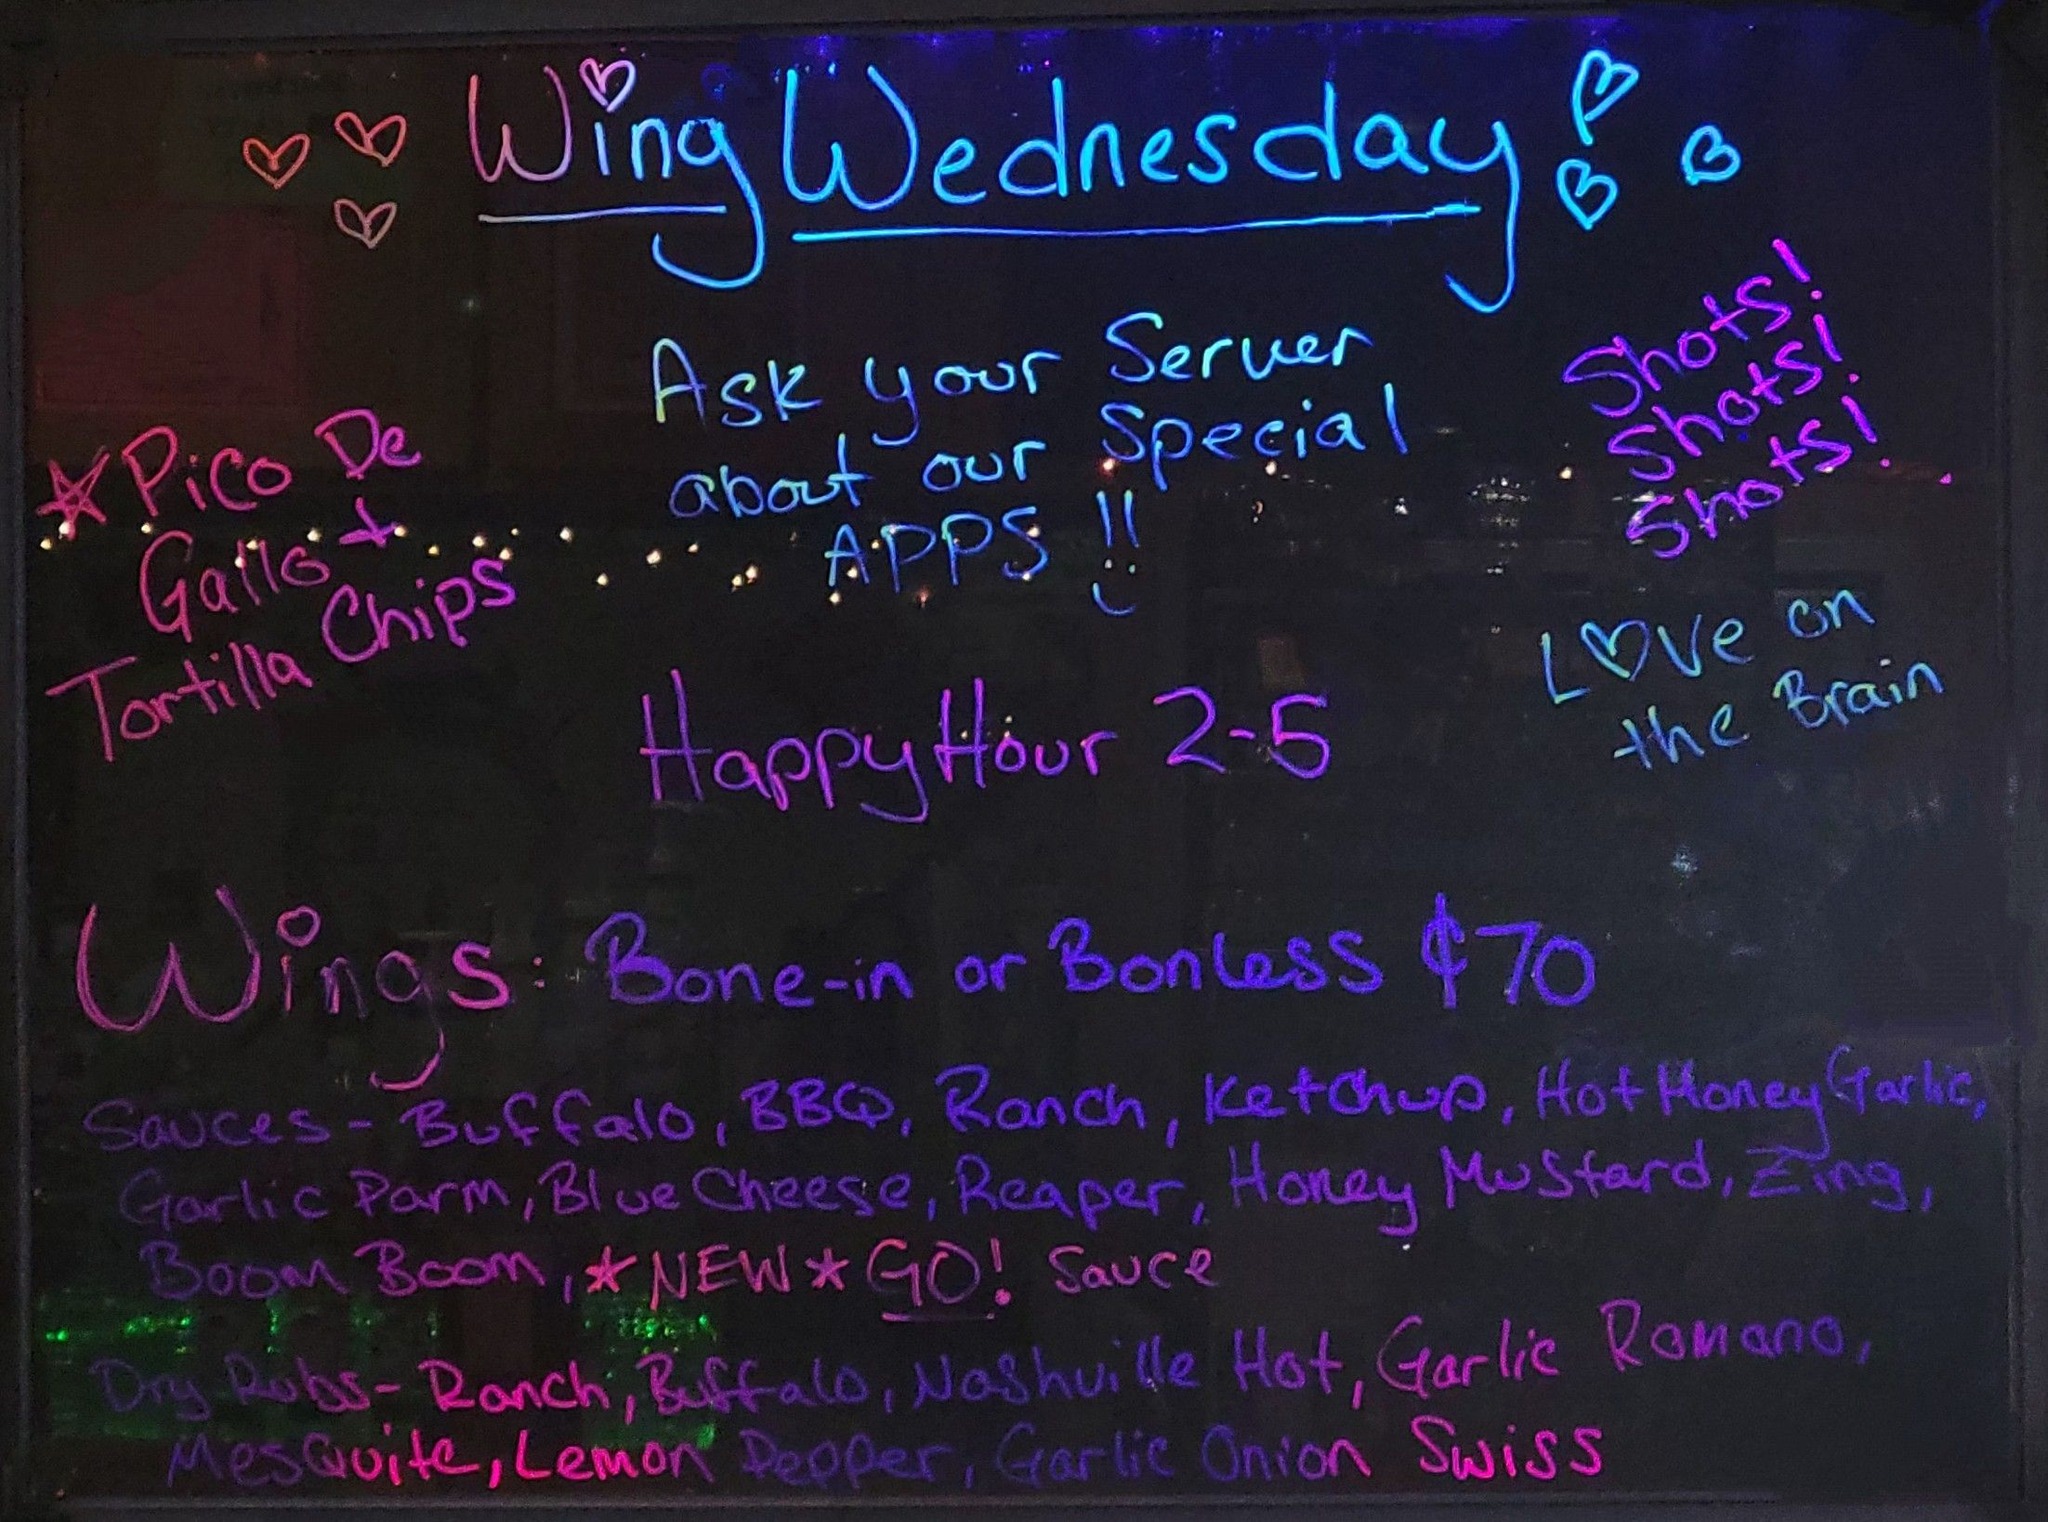 Wing Wednesday
Ask your Server
about our Special
APPS !!
Pico De
Gallo +
Tortilla Chips
Shots!
Shots!
Shots!
Love on
the Brain
Happy Hour 2-5
Wings: Bone-in or Bonless ¢70
Sauces - Buffalo, BBQ, Ranch, Ketchup, Hot Honey Garlic,
Garlic Parm, Blue Cheese, Reaper, Honey Mustard, Zing,
Boom Boom, *NEW* GO! Sauce
Dry Rubs - Ranch, Buffalo, Nashville Hot, Garlic Romano,
Mesquite, Lemon Pepper, Garlic Onion Swiss